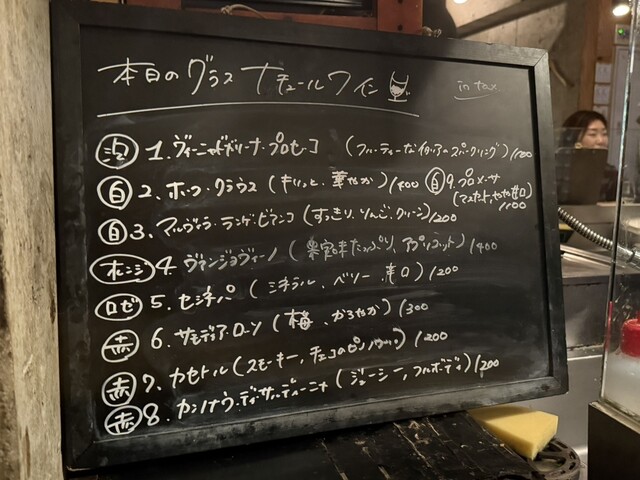 本日のグラス ナチュールワイン
in tax
泡 1. ヴィーニャドゲリーナ・プロセッコ (フルーティーなイタリアのスパークリング) /1200
白 2. ホーフ・グラウス (キリッと、華やか) /1400
白 9. プロメーサ (マスカット、やや甘口) /1100
白 3. マルヴィラ・ランゲ・ビアンコ (すっきり、りんご、クリーン) /1200
オレンジ 4. ヴァンジョヴィーノ (果実味たっぷり、アプリコット) /1400
ロゼ 5. センネパ (ミネラル、ベリー、辛口) /1200
赤 6. (梅、かろやか) /1300
赤 7. カセトル (スモーキー、チェコのピノ) /1200
赤 8. カンノナウ・ディ・サルディーニャ (ジューシー、フルボディ) /1200